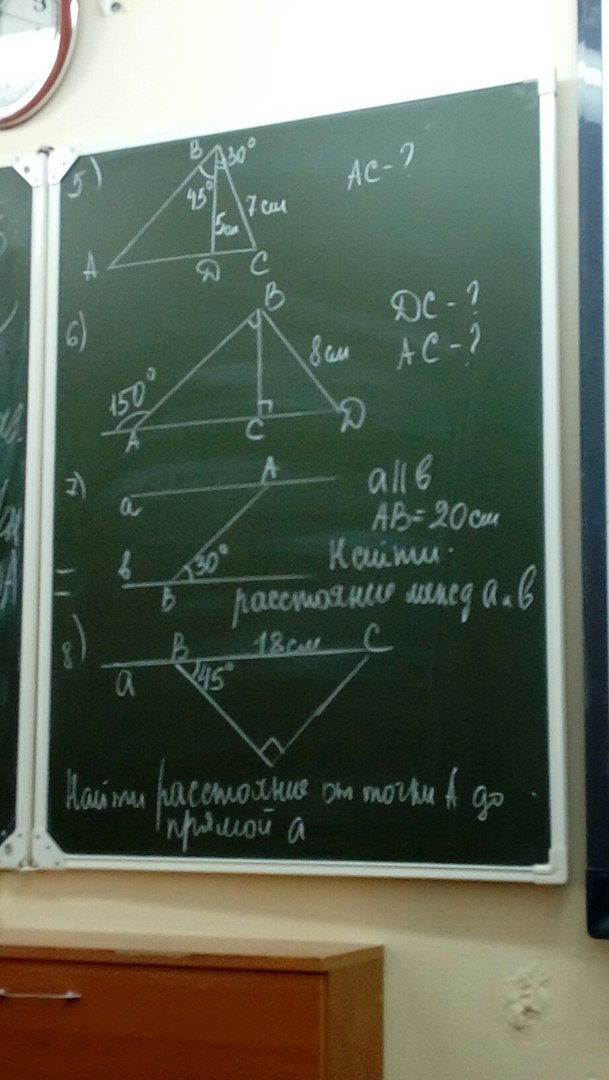 5) B 30° AC-?
45° 7 см
5 см
A D C
6) B DC-?
8 см AC-?
150°
A C D
7) A a||в
a AB=20 см
в 30° Найти
B расстояние между a и в
8) B 18 см C
a 45°
Найти расстояние от точки A до
прямой a
3